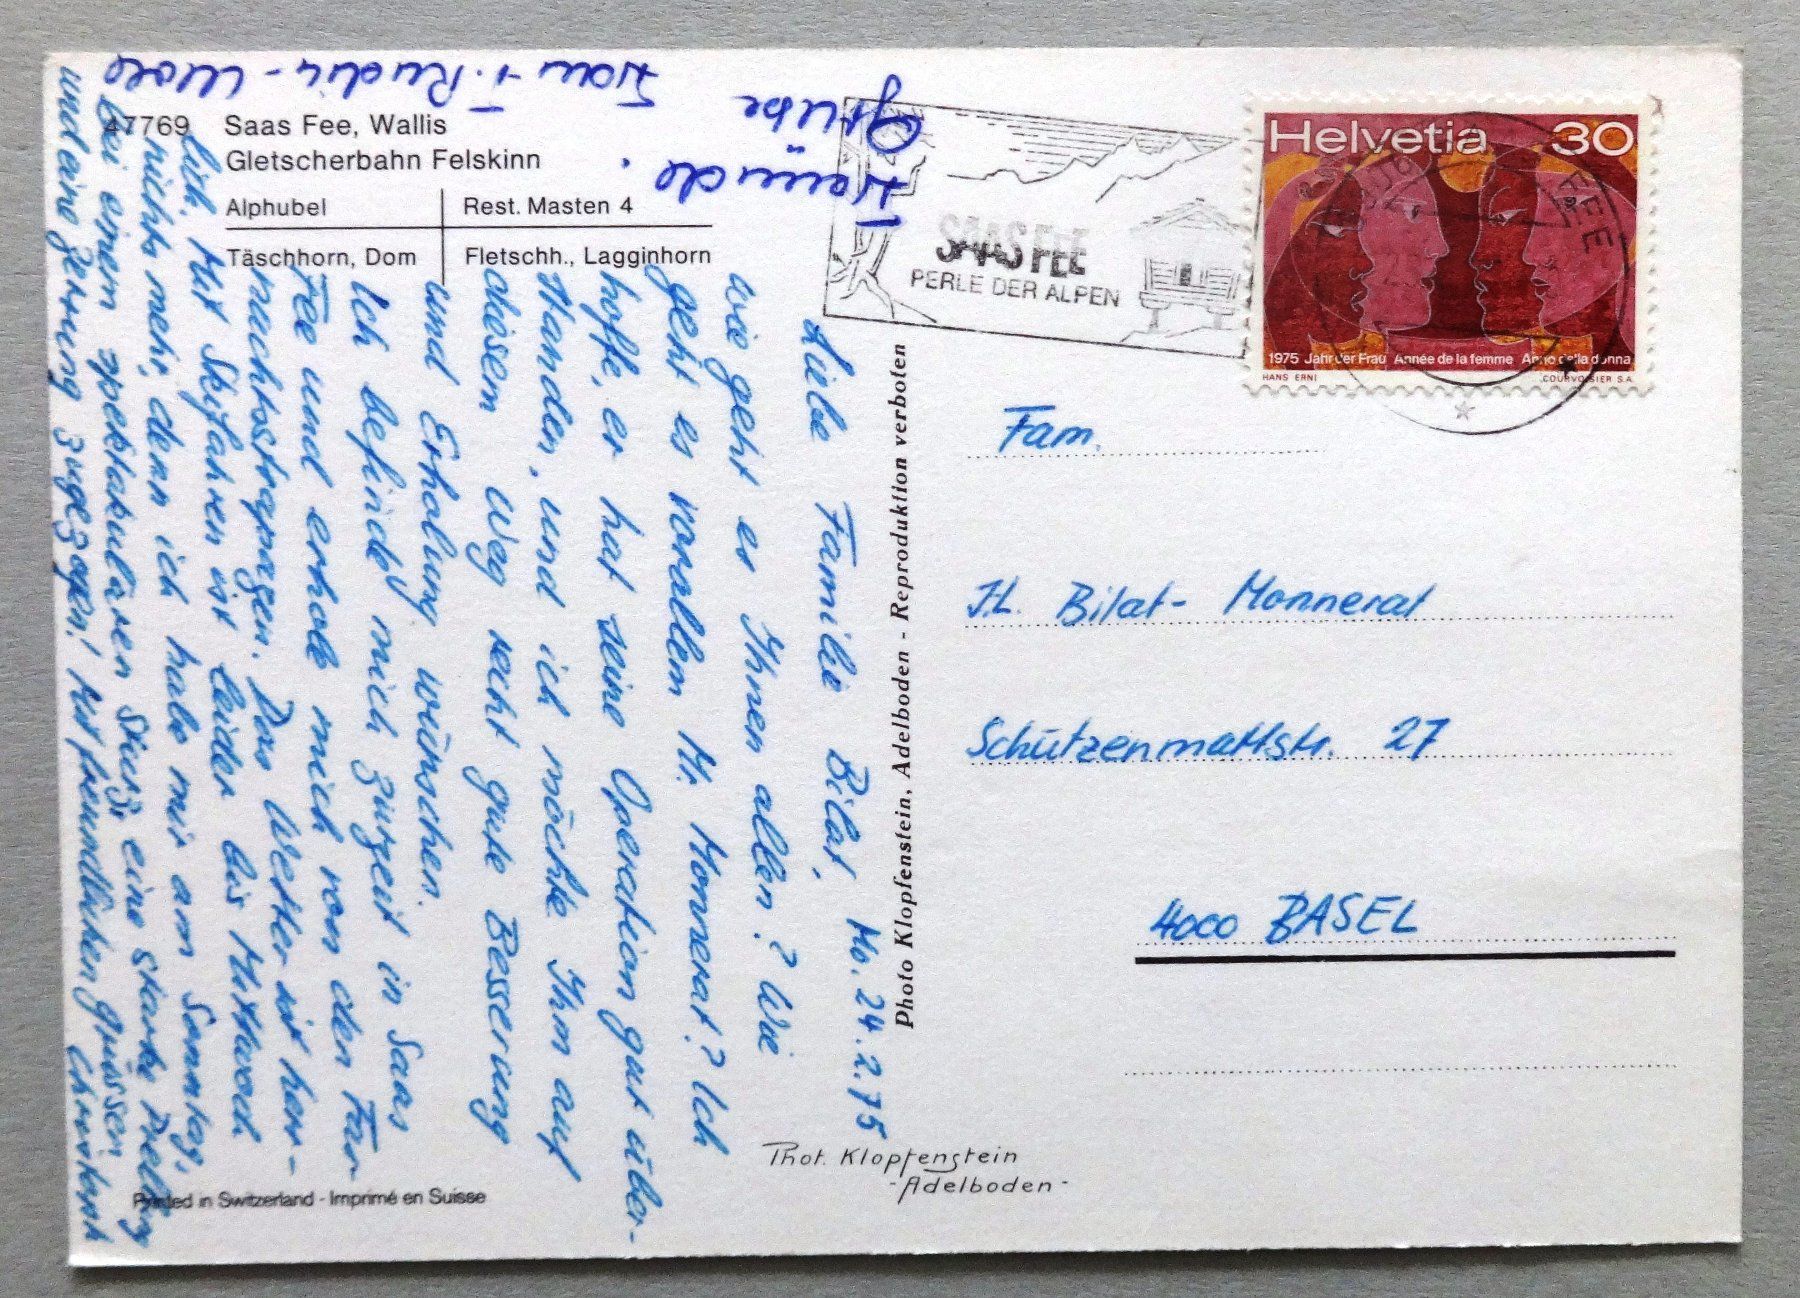 47769 Saas Fee, Wallis
Gletscherbahn Felskinn
Alphubel
Rest. Masten 4
Täschhorn, Dom
Fletschh., Lagginhorn
SAAS FEE
PERLE DER ALPEN
Helvetia 30
1975 Jahr der Frau Année de la femme Anno della donna
HANS ERNI
COURVOISIER S.A.
Mo. 24.2.75
Liebe Familie Bilat,
wie geht es Ihnen allen? Wie
geht es vorallem H. Monnerat? Ich
hoffe, er hat seine Operation gut über-
standen, und ich möchte Ihm auf
diesem Weg recht gute Besserung
und Erholung wünschen.
Ich befinde mich zurzeit in Saas
Fee und erhole mich von den Fas-
nachtsstrapazen. Das Wetter ist herr-
lich. Mit Skifahren ist leider bis Mittwoch
nichts mehr, denn ich habe mir am Sonntag,
bei einem spektakulären Sturz eine starke Prellung
und eine Zerrung zugezogen! Mit freundlichen Grüssen
Grüsse Frau T. Rudin-
Freunde.
Photo Klopfenstein, Adelboden - Reproduktion verboten
Fam.
J.L. Bilat-Monnerat
Schützenmattstr. 27
4000 BASEL
Phot. Klopfenstein
-Adelboden-
Printed in Switzerland - Imprimé en Suisse